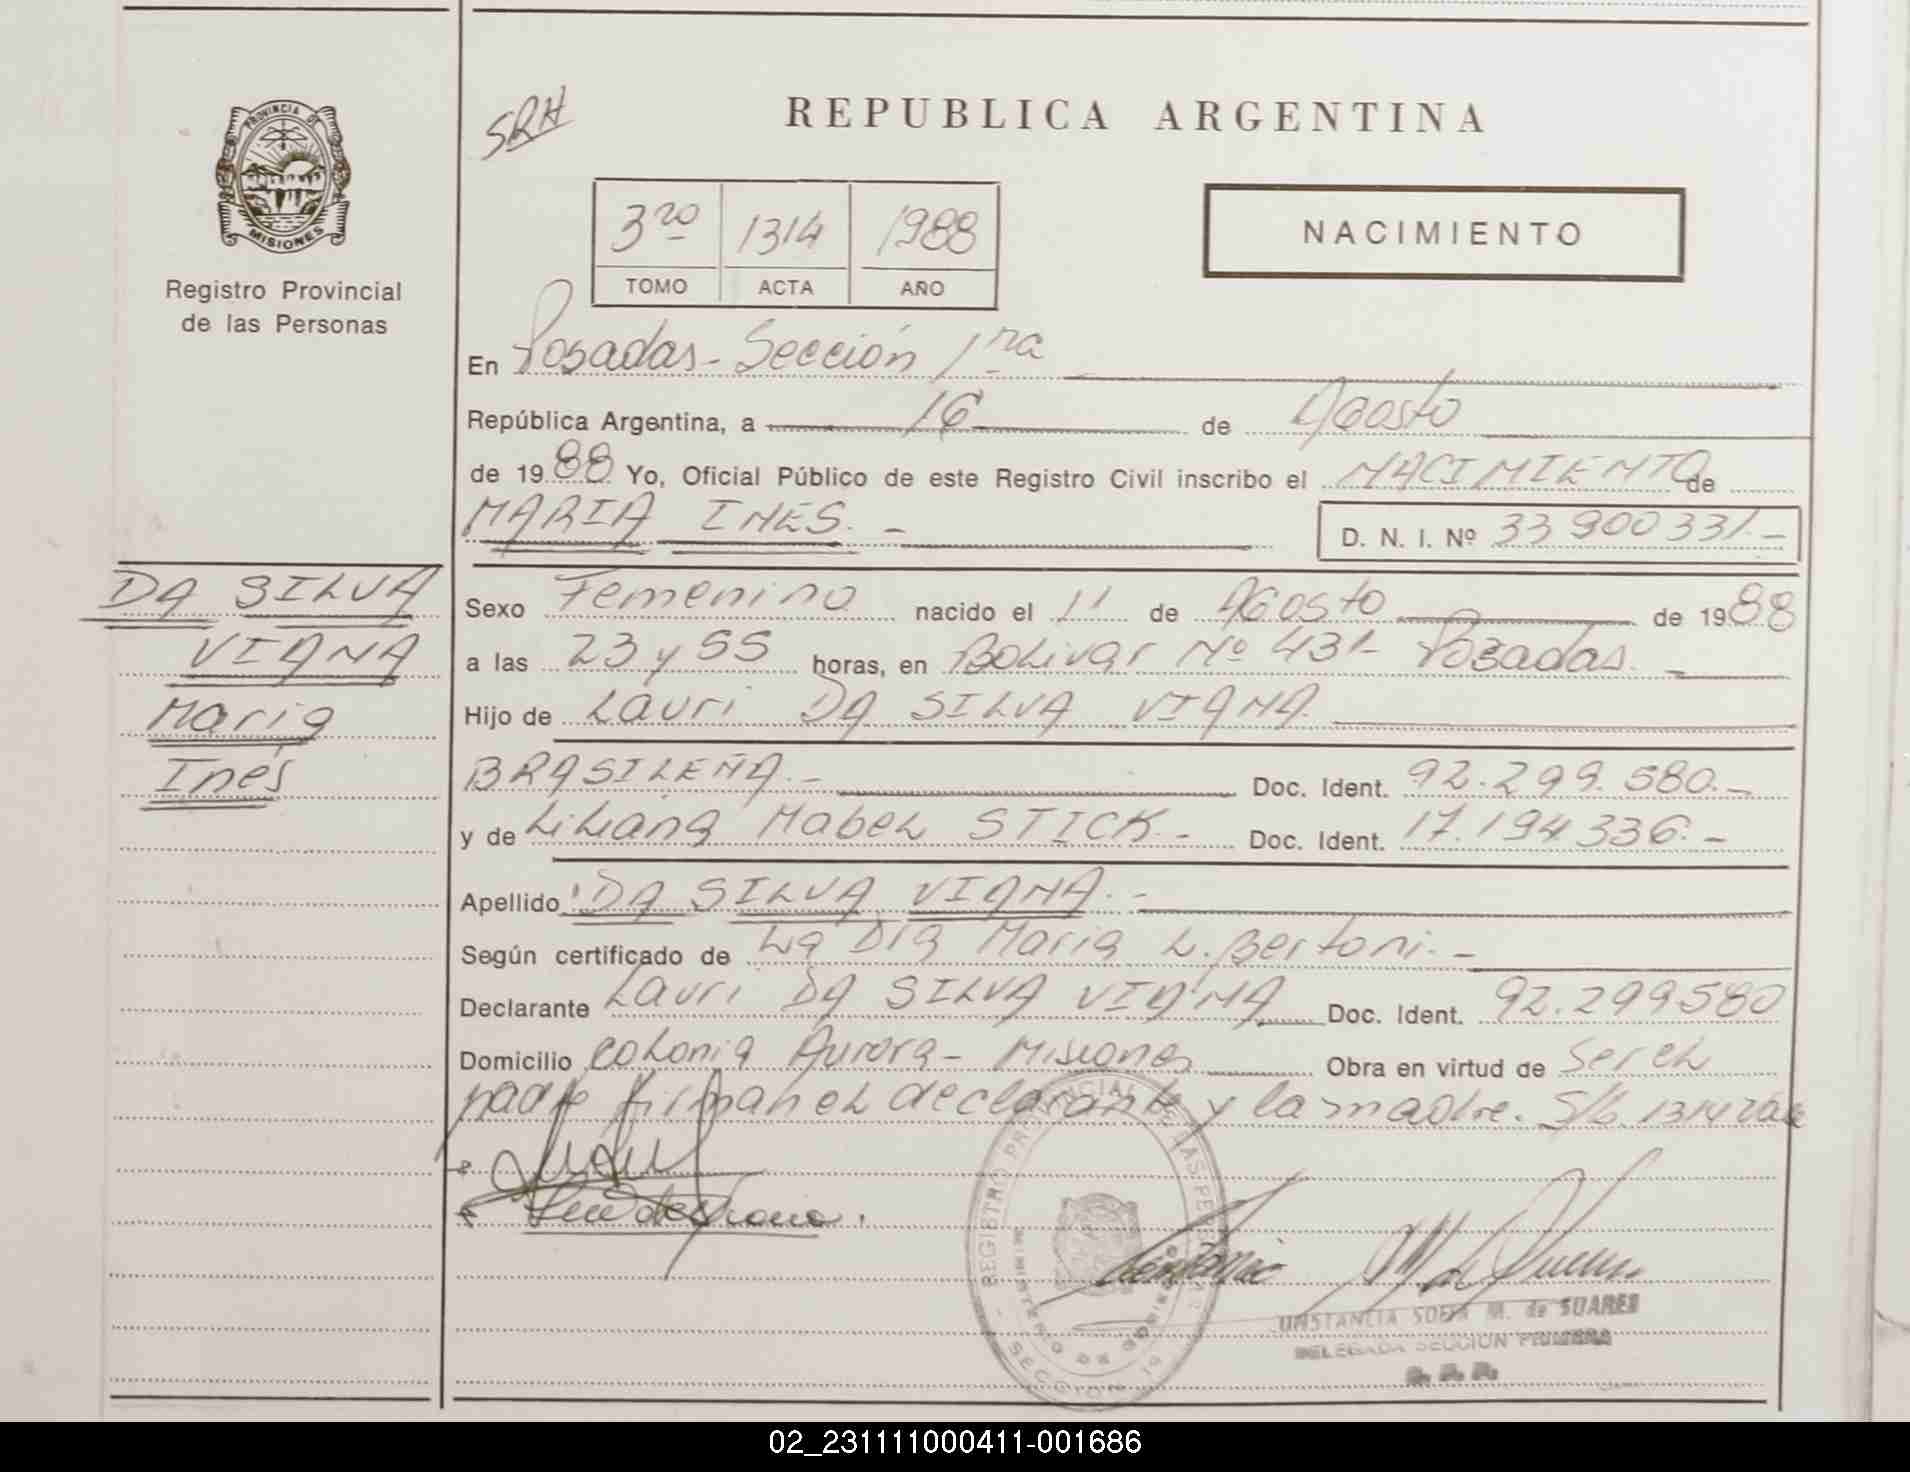 SRH
REPUBLICA ARGENTINA
PROVINCIA DE
MISIONES
Registro Provincial
de las Personas
3ro 1314 1988
TOMO ACTA AÑO
NACIMIENTO
En Posadas - Sección 1ra
República Argentina, a 16 de Agosto
de 1988 Yo, Oficial Público de este Registro Civil inscribo el NACIMIENTO de
MARIA INES. - D. N. I. Nº 33 900 331.-
DA SILVA
VIANA
Maria
Inés
Sexo Femenino nacido el 11 de Agosto de 1988
a las 23 y 55 horas, en Bolivar Nº 431- Posadas. -
Hijo de Lauri DA SILVA VIANA
BRASILEÑA. - Doc. Ident. 92.299.580. -
y de Liliana Mabel STICK. - Doc. Ident. 17.194336. -
Apellido: DA SILVA VIANA. -
Según certificado de La Dra Maria L. Bertoni. -
Declarante Lauri DA SILVA VIANA Doc. Ident. 92.299580
Domicilio Colonia Aurora - Misiones Obra en virtud de Ser el
padre firman el declarante y la madre. S/b. 1314 vale
REGISTRO PROVINCIAL DE LAS PERSONAS
MINISTERIO DE GOBIERNO
SECCION 1ª
SOFIA M. de SUAREZ
DELEGADA SECCION PRIMERA
R. P. P.
02_231111000411-001686